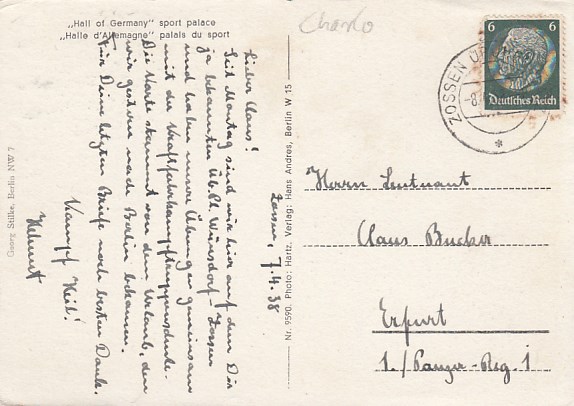 „Hall of Germany" sport palace
„Halle d'Allemagne" palais du sport
Zossen, 7.4.38
Lieber Claus!
Seit Montag sind wir hier auf dem Dir
ja bekannten Üb. Pl. Wünsdorf-Zossen
und haben unsere Übungen gemeinsam
mit der Kraftfahrkampftruppenschule.
Die Karte stammt von dem Urlaub, den
wir gestern nach Berlin bekamen.
Für Deine letzten Briefe noch besten Dank.
Kampf Heil!
Helmut
Georg Stilke, Berlin NW 7
Nr. 9590. Photo: Hartz. Verlag: Hans Andres, Berlin W 15
6 6
Deutsches Reich
ZOSSEN
Herrn Leutnant
Claus Bucher
Erfurt
1./Panzer-Reg. 1